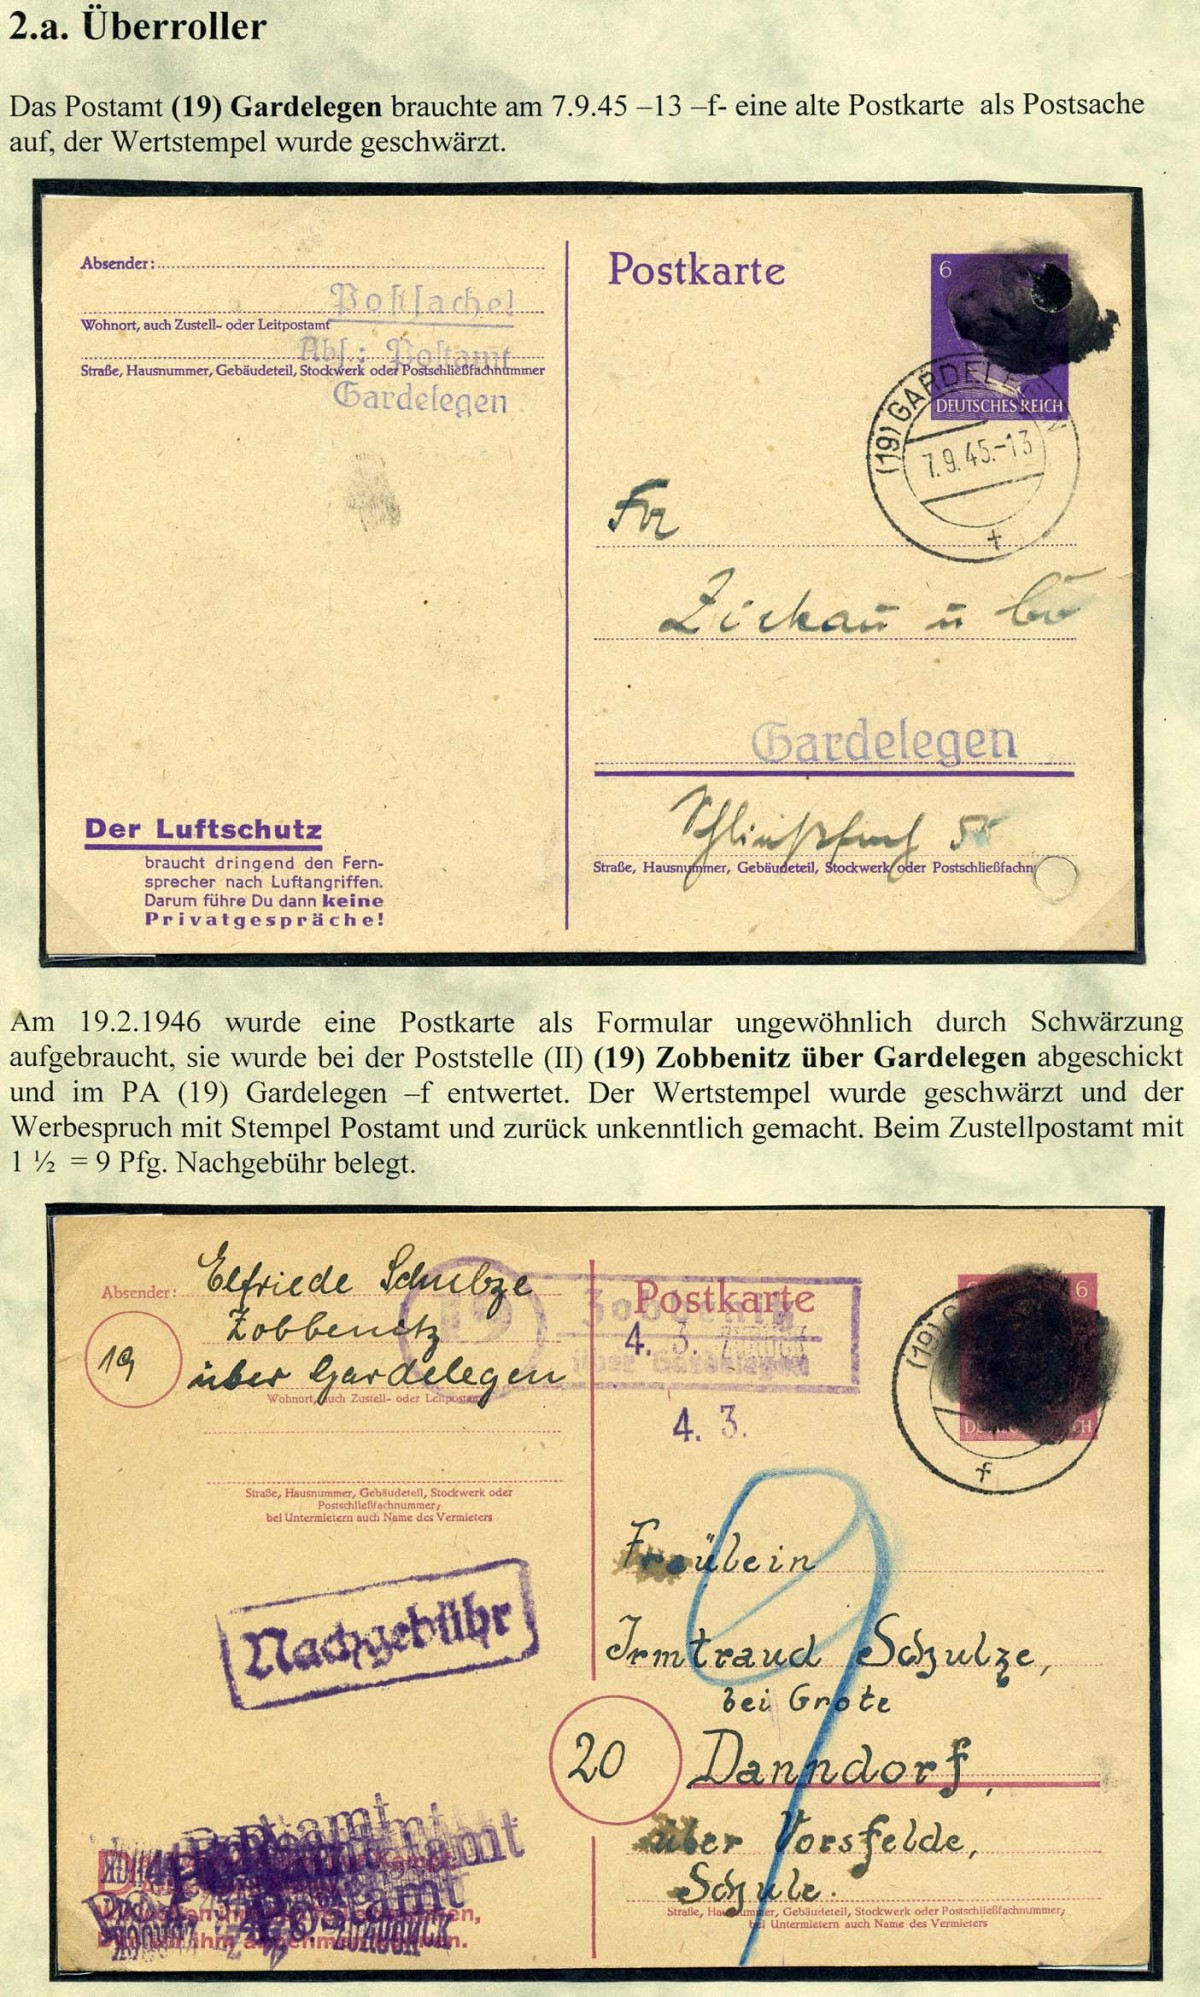 2.a. Überroller
Das Postamt (19) Gardelegen brauchte am 7.9.45 –13 –f- eine alte Postkarte als Postsache
auf, der Wertstempel wurde geschwärzt.
Absender:
Postsache!
Wohnort, auch Zustell- oder Leitpostamt
Abs.: Postamt
Straße, Hausnummer, Gebäudeteil, Stockwerk oder Postschließfachnummer
Gardelegen
Postkarte
6
DEUTSCHES REICH
(19) GARDELEGEN
7.9.45.-13
f
Zickau u Co
Gardelegen
Schließfach 55
Straße, Hausnummer, Gebäudeteil, Stockwerk oder Postschließfachn
Der Luftschutz
braucht dringend den Fern-
sprecher nach Luftangriffen.
Darum führe Du dann keine
Privatgespräche!
Am 19.2.1946 wurde eine Postkarte als Formular ungewöhnlich durch Schwärzung
aufgebraucht, sie wurde bei der Poststelle (II) (19) Zobbenitz über Gardelegen abgeschickt
und im PA (19) Gardelegen –f entwertet. Der Wertstempel wurde geschwärzt und der
Werbespruch mit Stempel Postamt und zurück unkenntlich gemacht. Beim Zustellpostamt mit
1 ½ = 9 Pfg. Nachgebühr belegt.
Absender: Elfriede Schulze
Zobbenitz
19 über Gardelegen
Wohnort, auch Zustell- oder Leitpostamt
Straße, Hausnummer, Gebäudeteil, Stockwerk oder
Postschließfachnummer;
bei Untermietern auch Name des Vermieters
19 Zobbenitz
über Gardelegen
Postkarte
4. 3. ZURÜCK
4. 3.
6
(19)
f
Nachgebühr
9
Fräulein
Irmtraud Schulze,
bei Grote
20 Danndorf,
über Vorsfelde,
Schule.
Straße, Hausnummer, Gebäudeteil, Stockwerk oder Postschließfachnummer;
bei Untermietern auch Name des Vermieters
Postamt
Postamt
ZURÜCK